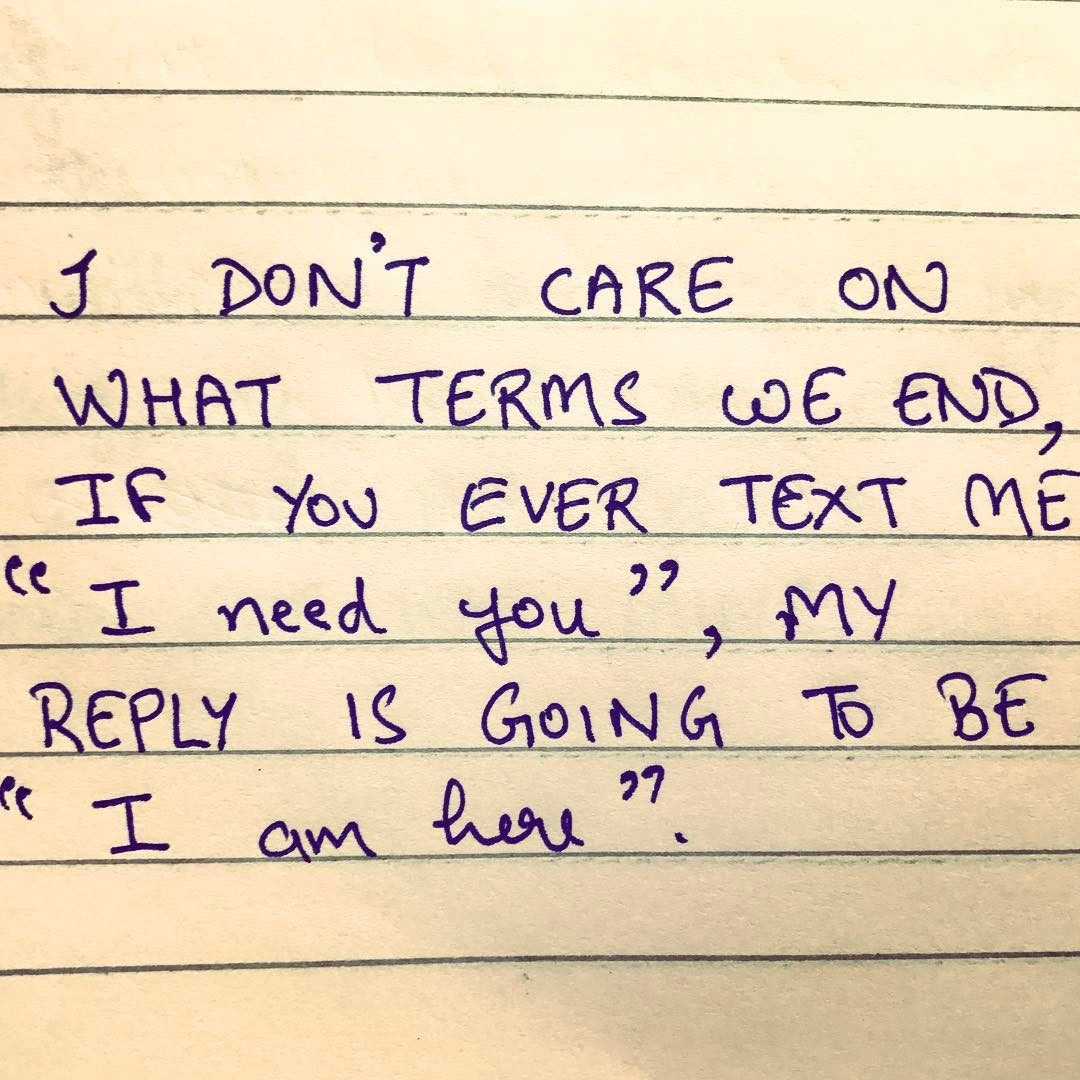 I DON'T CARE ON
WHAT TERMS WE END,
IF YOU EVER TEXT ME
“I need you”, MY
REPLY IS GOING TO BE
“I am here”.